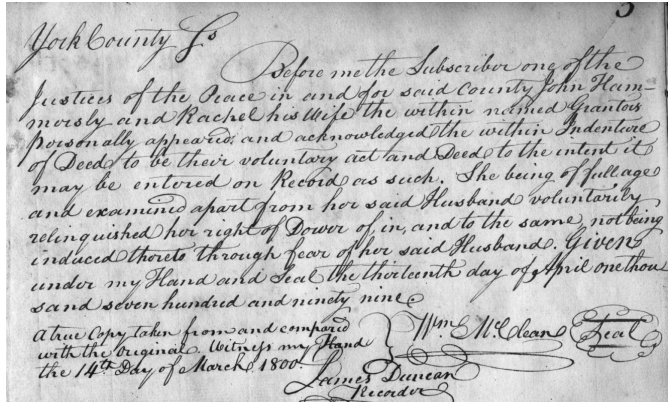 3
York County Ss
Before me the Subscriber one of the
Justices of the Peace in and for said County John Ham-
mersly and Rachel his Wife the within named Grantors
personally appeared, and acknowledged the within Indenture
of Deed to be their voluntary act and Deed to the intent it
may be entered on Record as such. She being of full age
and examined apart from her said Husband voluntarily
relinquished her right of Dower of, in, and to the same, not being
induced thereto through fear of her said Husband. Given
under my Hand and Seal the thirteenth day of April one thou
sand seven hundred and ninety nine
a true Copy taken from and compared
with the Original. Witness my Hand
the 14th Day of March 1800.
Wm McClean Seal
James Duncan
Recorder